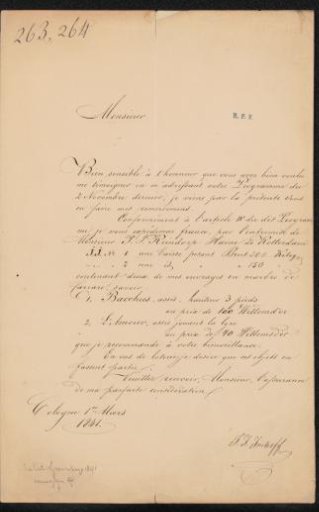 263, 264
Monsieur
Bien sensible à l'honneur que vous avez bien voulu
me témoigner en m'adressant votre Programme du
2 Novembre dernier, je viens par la présente vous
en faire mes remerciemens.
Conformément à l'article de dit Program
me je vous expédierai franco, par l'entremise de
Monsieur de Rotterdam
une caisse pesant Brut Kilogr
2 id.
contenant deux de mes ouvrages en marbre de
savoir
1. Bacchus, assis, hauteur 3 pieds
au prix de 100 Willemsd'or
2. L'Amour, assis jouant la lyre
au prix de Willemsd'or
que je recommande à votre bienveillance.
En cas de loterie je désire que ces objets en
fassent partie.
Veuillez recevoir, Monsieur, l'assurance
de ma parfaite considération
Cologne 1er Mars
1841.
P. J. Imhoff